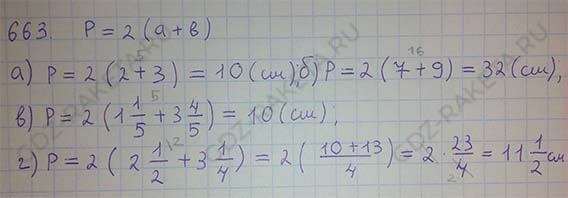 663. P = 2 (a + b)
а) P = 2 (2 + 3) = 10 (см); б) P = 2 (7 + 9) = 32 (см);
в) P = 2 (1 1/5 + 3 4/5) = 10 (см);
г) P = 2 (2 1/2 + 3 1/4) = 2 (10+13/4) = 2 · 23/4 = 11 1/2 см
GDZ-RAKETA.RU